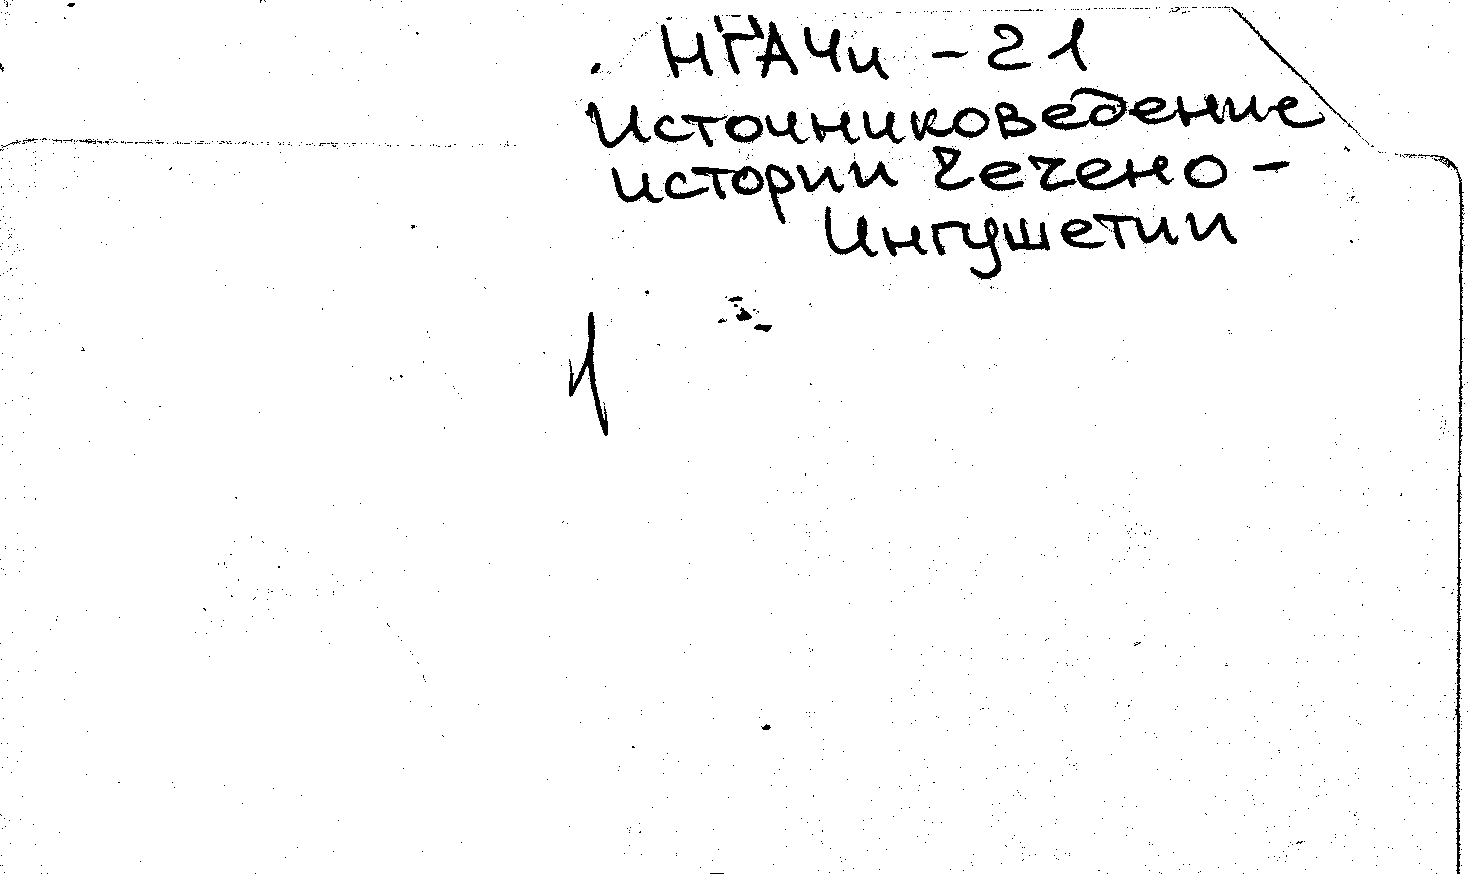 НГАЧи - 21
Источниковедение
истории Чечено-
Ингушетии